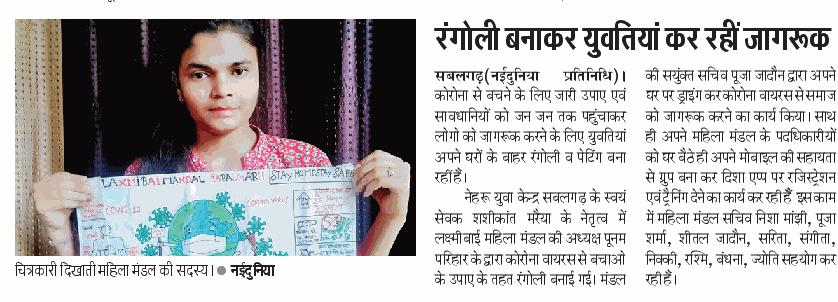 रंगोली बनाकर युवतियां कर रहीं जागरूक
सबलगढ़(नईदुनिया प्रतिनिधि)।
कोरोना से बचने के लिए जारी उपाए एवं
सावधानियों को जन जन तक पहुंचाकर
लोगो को जागरूक करने के लिए युवतियां
अपने घरों के बाहर रंगोली व पेटिंग बना
रहीं हैं।
नेहरू युवा केन्द्र सबलगढ़ के स्वयं
सेवक शशीकांत मरैया के नेतृत्व में
लक्ष्मीबाई महिला मंडल की अध्यक्ष पूनम
परिहार के द्वारा कोरोना वायरस से बचाओ
के उपाए के तहत रंगोली बनाई गई। मंडल
की सयुंक्त सचिव पूजा जादौन द्वारा अपने
घर पर ड्राइंग कर कोरोना वायरस से समाज
को जागरूक करने का कार्य किया। साथ
ही अपने महिला मंडल के पदधिकारीयों
को घर बैठे ही अपने मोबाइल की सहायता
से ग्रुप बना कर दिशा एप्प पर रजिस्ट्रेशन
एवं ट्रैनिंग देने का कार्य कर रही हैं इस काम
में महिला मंडल सचिव निशा मांझी, पूजा
शर्मा, शीतल जादौन, सरिता, संगीता,
निक्की, रश्मि, बंधना, ज्योति सहयोग कर
रही हैं।
LAXMIBAI MANDAL SABALGARH STAY HOME STAY SAFE
COVID-19
CORONA VIRUS
चित्रकारी दिखाती महिला मंडल की सदस्य। ● नईदुनिया